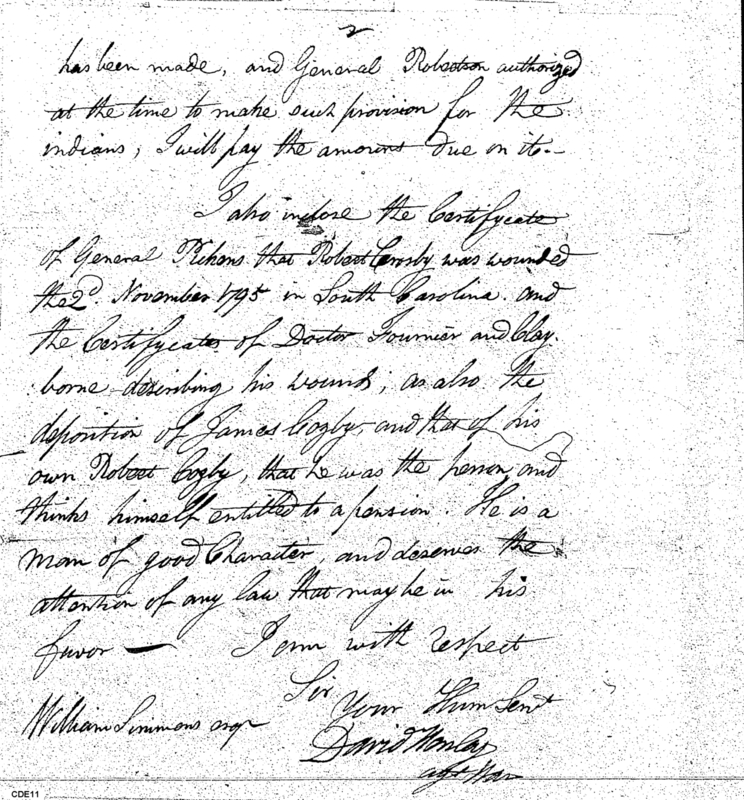 2
has been made, and General Robertson authorized
at the time to make such provision for the
indians, I will pay the amount due on it.—
I also inclose the Certifycate
of General Pickens that Robert Crosby was wounded
the 2d. November 1795 in South Carolina. and
the Certifycates of Doctor Fournier and Clay-
borne describing his wound; as also the
deposition of James Cozby, and that of his
own Robert Cozby, that he was the person, and
thinks himself entitled to a pension. He is a
man of good Character, and deserves the
attention of any law that may be in his
favor — I am with respect
Sir
Your Hum Servt
William Simmons esqr
David Henley
agt War
CDE11